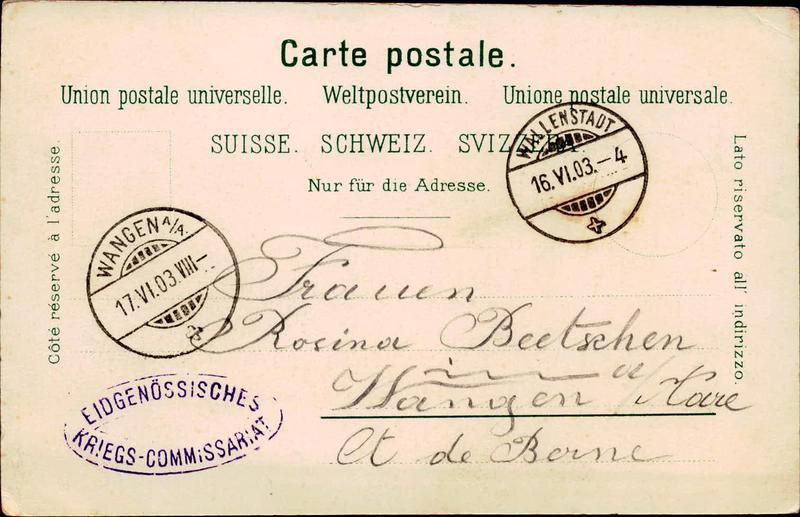 Carte postale.
Union postale universelle. Weltpostverein. Unione postale universale.
SUISSE. SCHWEIZ. SVIZZERA.
Nur für die Adresse.
Côté réservé à l'adresse.
Lato riservato all' indirizzo.
WALLENSTADT
16.VI.03.-4
WANGEN A/A.
17.VI.03.VIII-
Frauen
Rosina Beetschen
Wangen a/Aare
Ct de Berne
EIDGENÖSSISCHES
KRIEGS-COMMISSARIAT